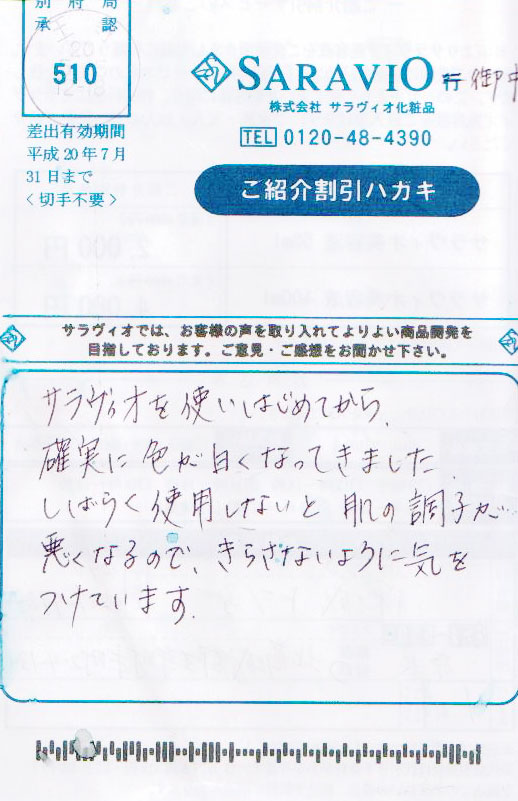 別府局
承認
510
差出有効期間
平成20年7月
31日まで
<切手不要>
SARAVIO 行 御中
株式会社 サラヴィオ化粧品
TEL 0120-48-4390
ご紹介割引ハガキ
サラヴィオでは、お客様の声を取り入れてよりよい商品開発を
目指しております。ご意見・ご感想をお聞かせ下さい。
サラヴィオを使いはじめてから、
確実に色が白くなってきました。
しばらく使用しないと肌の調子が…
悪くなるので、きらさないように気を
つけています。